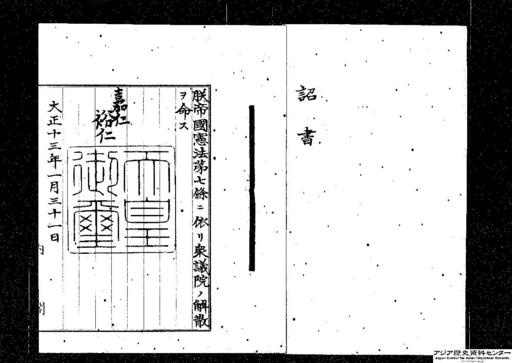 詔書
朕帝國憲法第七條ニ依リ衆議院ノ解散
ヲ命ス
嘉仁
裕仁
天皇御璽
大正十三年一月三十一日
内閣
アジア歴史資料センター
Japan Center for Asian Historical Records